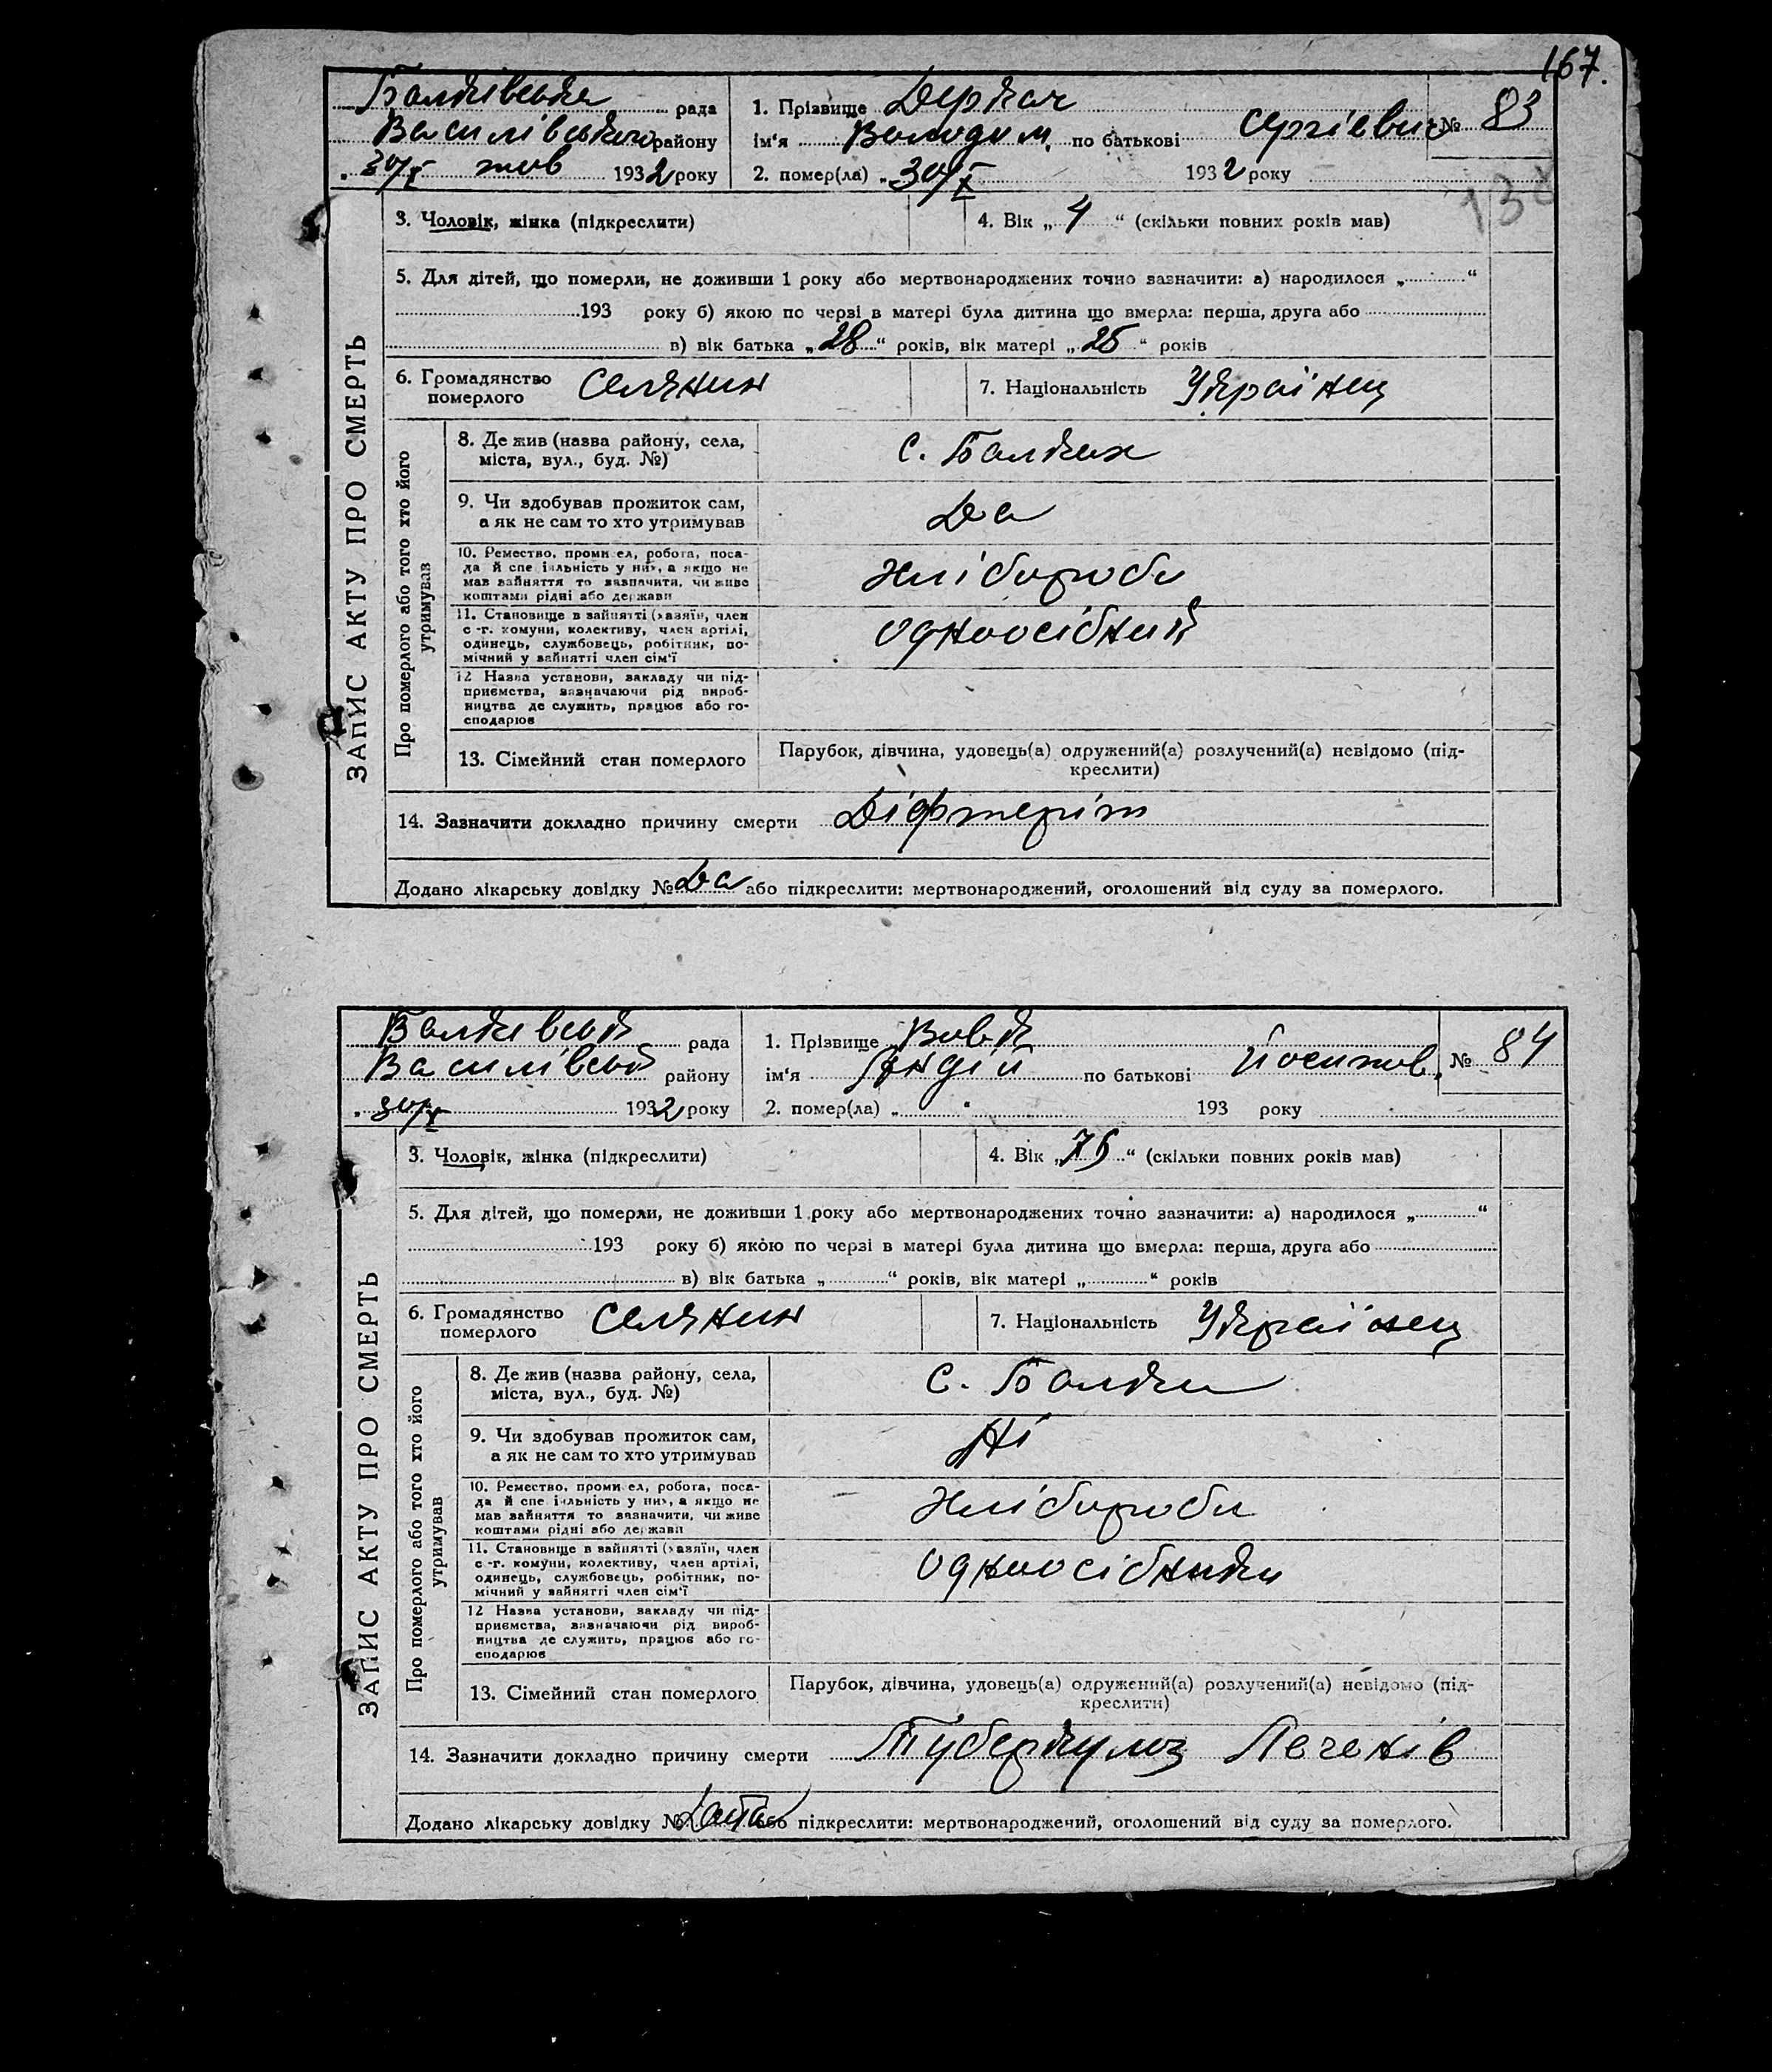 167.
Балківська рада
Василівського району
30/X жов 1932 року
1. Прізвище Деркач
ім'я Володим. по батькові Сергієвич № 83
2. помер(ла) „30/X 1932 року
138
3. Чоловік, жінка (підкреслити)
4. Вік „4“ (скільки повних років мав)
5. Для дітей, що померли, не доживши 1 року або мертвонароджених точно зазначити: а) народилося „ “
193 року б) якою по черзі в матері була дитина що вмерла: перша, друга або
в) вік батька „28“ років, вік матері „25“ років
6. Громадянство померлого Селянин
7. Національність Українец
ЗАПИС АКТУ ПРО СМЕРТЬ
Про померлого або того хто його утримував
8. Де жив (назва району, села,
міста, вул., буд. №)
с. Балках
9. Чи здобував прожиток сам,
а як не сам то хто утримував
Да
10. Ремество, промисел, робота, поса-
да й спеціяльність у них, а якщо не
мав зайняття то зазначити, чи живе
коштами рідні або держави
Хлібороби
11. Становище в зайнятті (хазяїн, член
с.-г. комуни, колективу, член артілі,
одинець, службовець, робітник, по-
мічний у зайнятті член сім'ї
Одноосібний
12 Назва установи, закладу чи під-
приємства, зазначаючи рід вироб-
ництва де служить, працює або го-
сподарює
13. Сімейний стан померлого
Парубок, дівчина, удовець(а) одружений(а) розлучений(а) невідомо (під-
креслити)
14. Зазначити докладно причину смерти Діфтеріт
Додано лікарську довідку № Да або підкреслити: мертвонароджений, оголошений від суду за померлого.
Балківськ рада
Василівськ району
30/X 1932 року
1. Прізвище Вовк
ім'я Андій по батькові Йосипов. № 84
2. помер(ла) „ “ 193 року
3. Чоловік, жінка (підкреслити)
4. Вік „75“ (скільки повних років мав)
5. Для дітей, що померли, не доживши 1 року або мертвонароджених точно зазначити: а) народилося „ “
193 року б) якою по черзі в матері була дитина що вмерла: перша, друга або
в) вік батька „ “ років, вік матері „ “ років
6. Громадянство померлого Селянин
7. Національність Українец
ЗАПИС АКТУ ПРО СМЕРТЬ
Про померлого або того хто його утримував
8. Де жив (назва району, села,
міста, вул., буд. №)
с. Балки
9. Чи здобував прожиток сам,
а як не сам то хто утримував
Ні
10. Ремество, промисел, робота, поса-
да й спеціяльність у них, а якщо не
мав зайняття то зазначити, чи живе
коштами рідні або держави
Хлібороби
11. Становище в зайнятті (хазяїн, член
с.-г. комуни, колективу, член артілі,
одинець, службовець, робітник, по-
мічний у зайнятті член сім'ї
Одноосібники
12 Назва установи, закладу чи під-
приємства, зазначаючи рід вироб-
ництва де служить, працює або го-
сподарює
13. Сімейний стан померлого
Парубок, дівчина, удовець(а) одружений(а) розлучений(а) невідомо (під-
креслити)
14. Зазначити докладно причину смерти Туберкулоз Легенів
Додано лікарську довідку № або підкреслити: мертвонароджений, оголошений від суду за померлого.